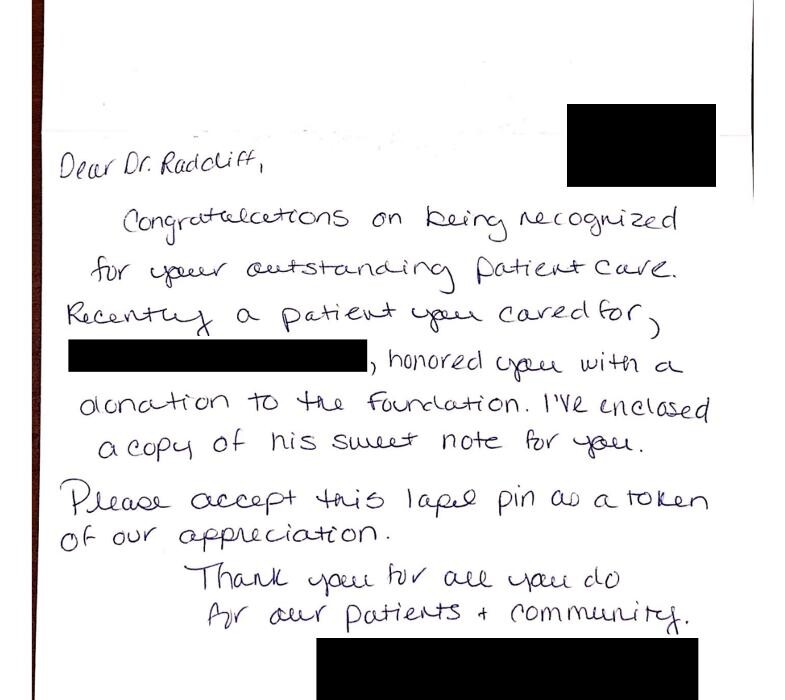 Dear Dr. Radcliff,
Congratulations on being recognized
for your outstanding patient care.
Recently a patient you cared for,
, honored you with a
donation to the foundation. I've enclosed
a copy of his sweet note for you.
Please accept this lapel pin as a token
of our appreciation.
Thank you for all you do
for our patients + community.